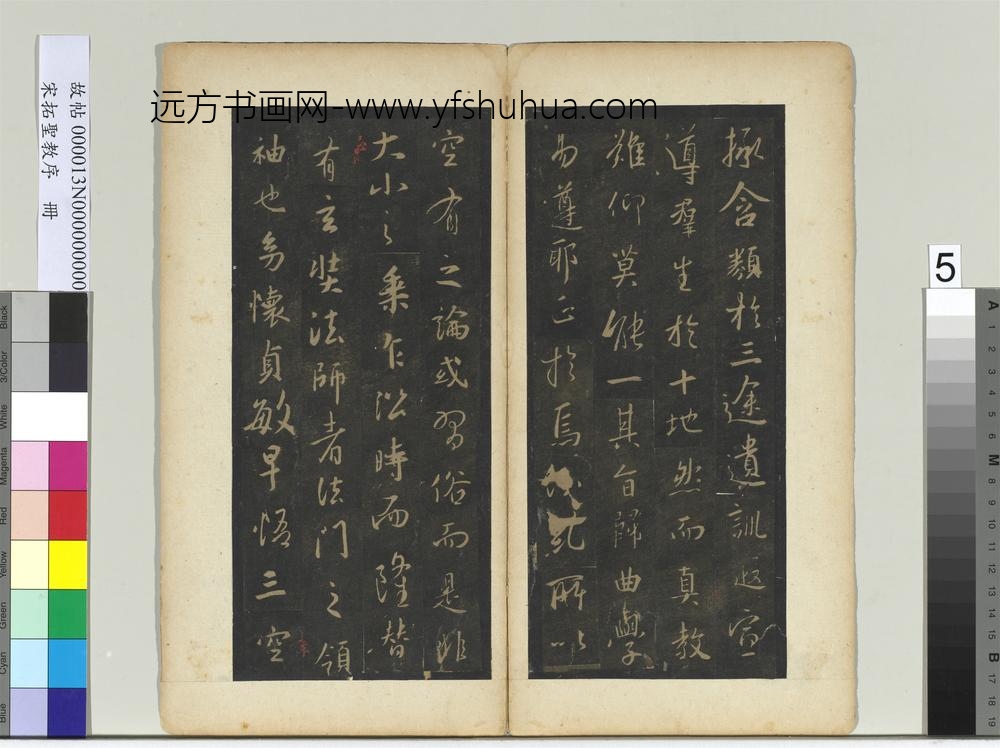 远方书画网-www.yfshuhua.com
故帖 000013N000000000
宋拓聖教序 冊
拯含類於三途遺訓遐宣
導羣生於十地然而真教
難仰莫能一其旨歸曲學
易遵耶正於焉糺所以
空有之論或習俗而是非
大小之乘乍沿時而隆替
有玄奘法師者法門之領
袖也幼懷貞敏早悟三空
5
Black
3/Color
White
Magenta
Red
Yellow
Green
Cyan
Blue
A
1
2
3
4
5
6
M
8
9
10
11
12
13
14
15
B
17
18
19